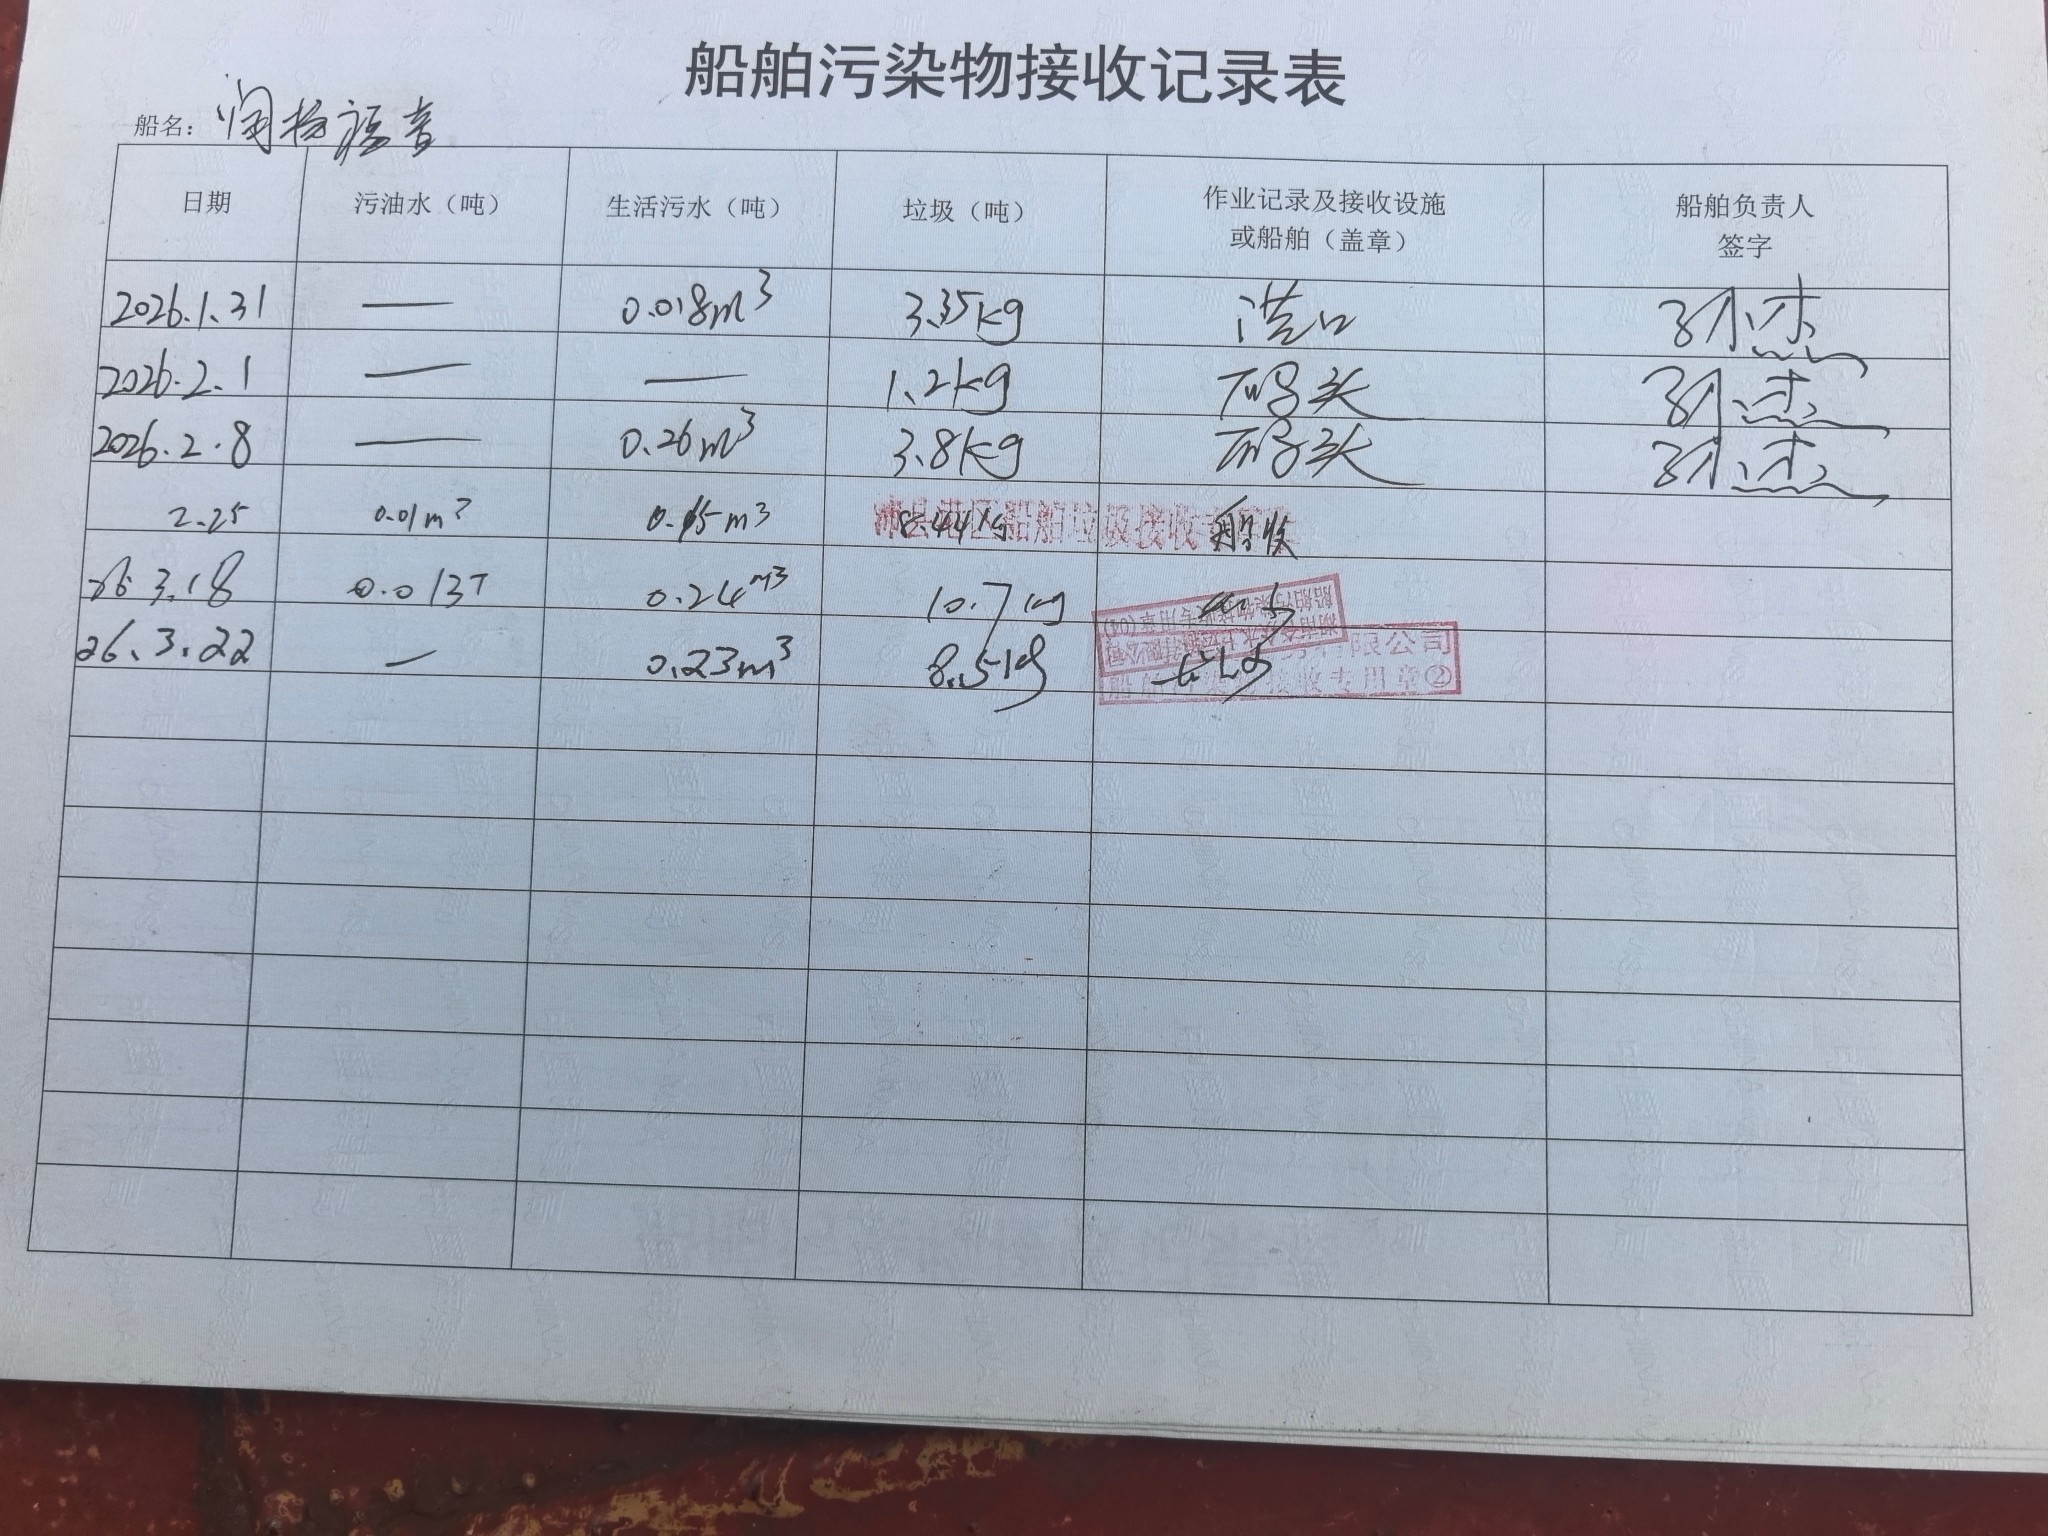 船舶污染物接收记录表
船名：润扬福音
日期 污油水（吨） 生活污水（吨） 垃圾（吨） 作业记录及接收设施或船舶（盖章） 船舶负责人签字
2026.1.31 — 0.018m³ 3.35kg 港口 孙杰
2026.2.1 — — 1.2kg 码头 孙杰
2026.2.8 — 0.26m³ 3.8kg 码头 孙杰
2.25 0.01m³ 0.15m³ 8.44kg
沛县港区船舶垃圾接收专用章
26 3.18 0.013T 0.24m³ 10.7kg
船舶污染物接收专用章(04)
26.3.22 — 0.23m³ 8.5kg
有限公司
船舶污染物接收专用章②